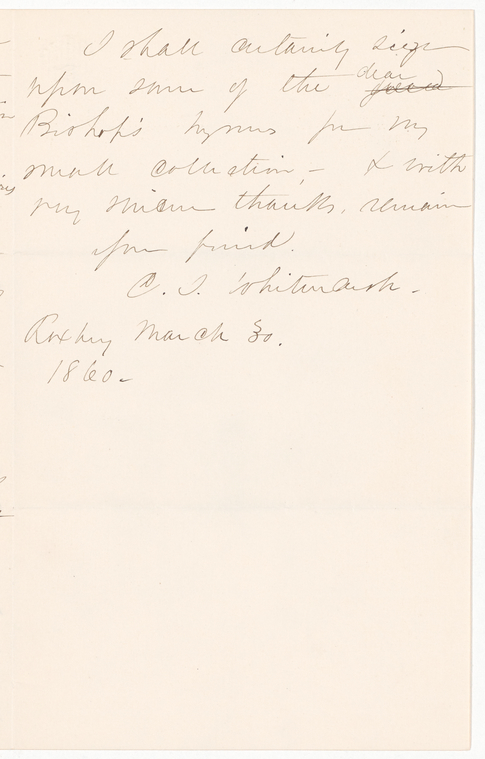 I shall certainly seize
upon some of the dear good
Bishop's hymns for my
small collection, - & with
my sincere thanks, remain
your friend.
C. I. Whitmarsh.
Roxbury March 30.
1860.